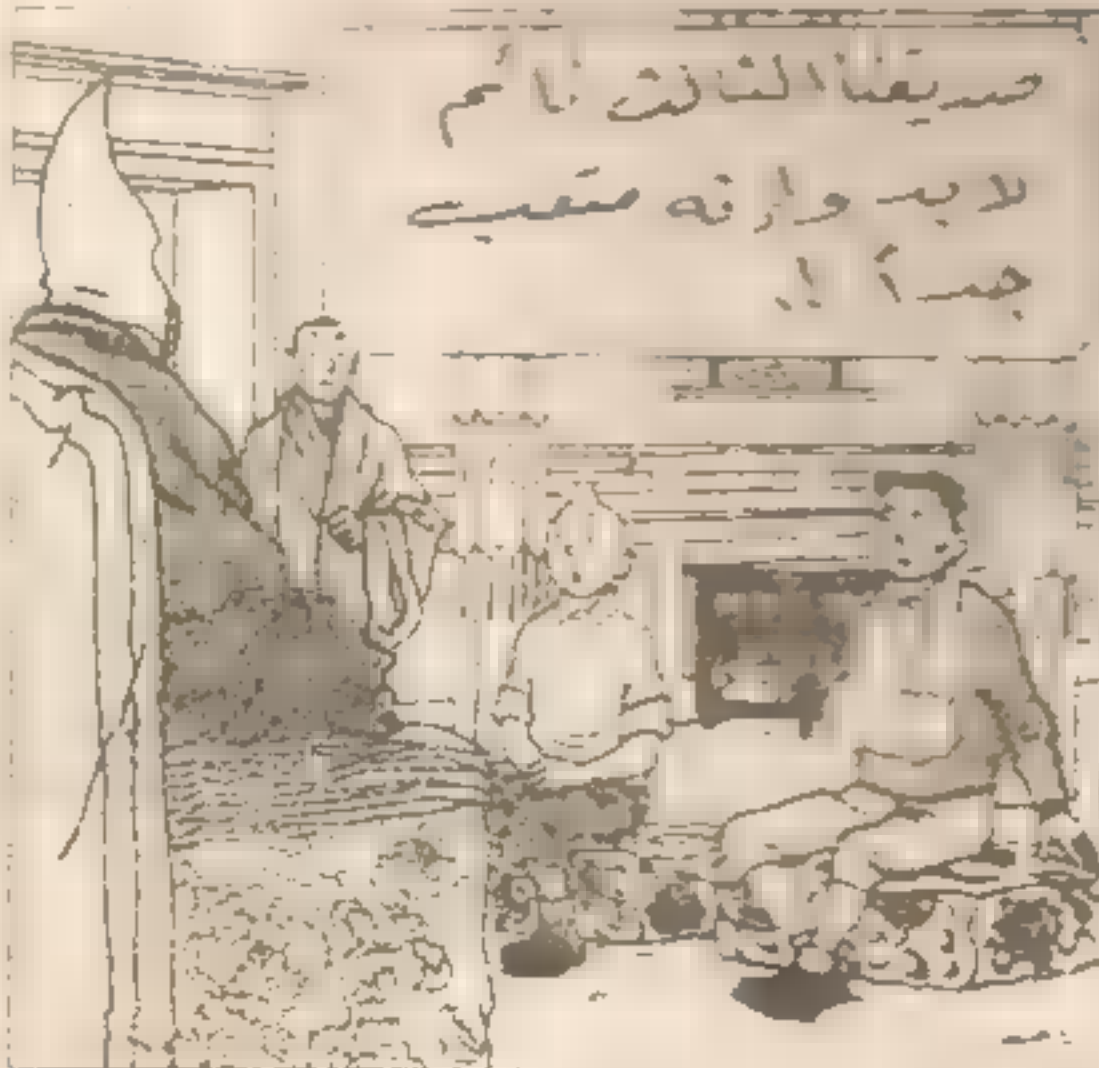 صديقنا الثالث نائم
لابد وانه متعب
جداً !!